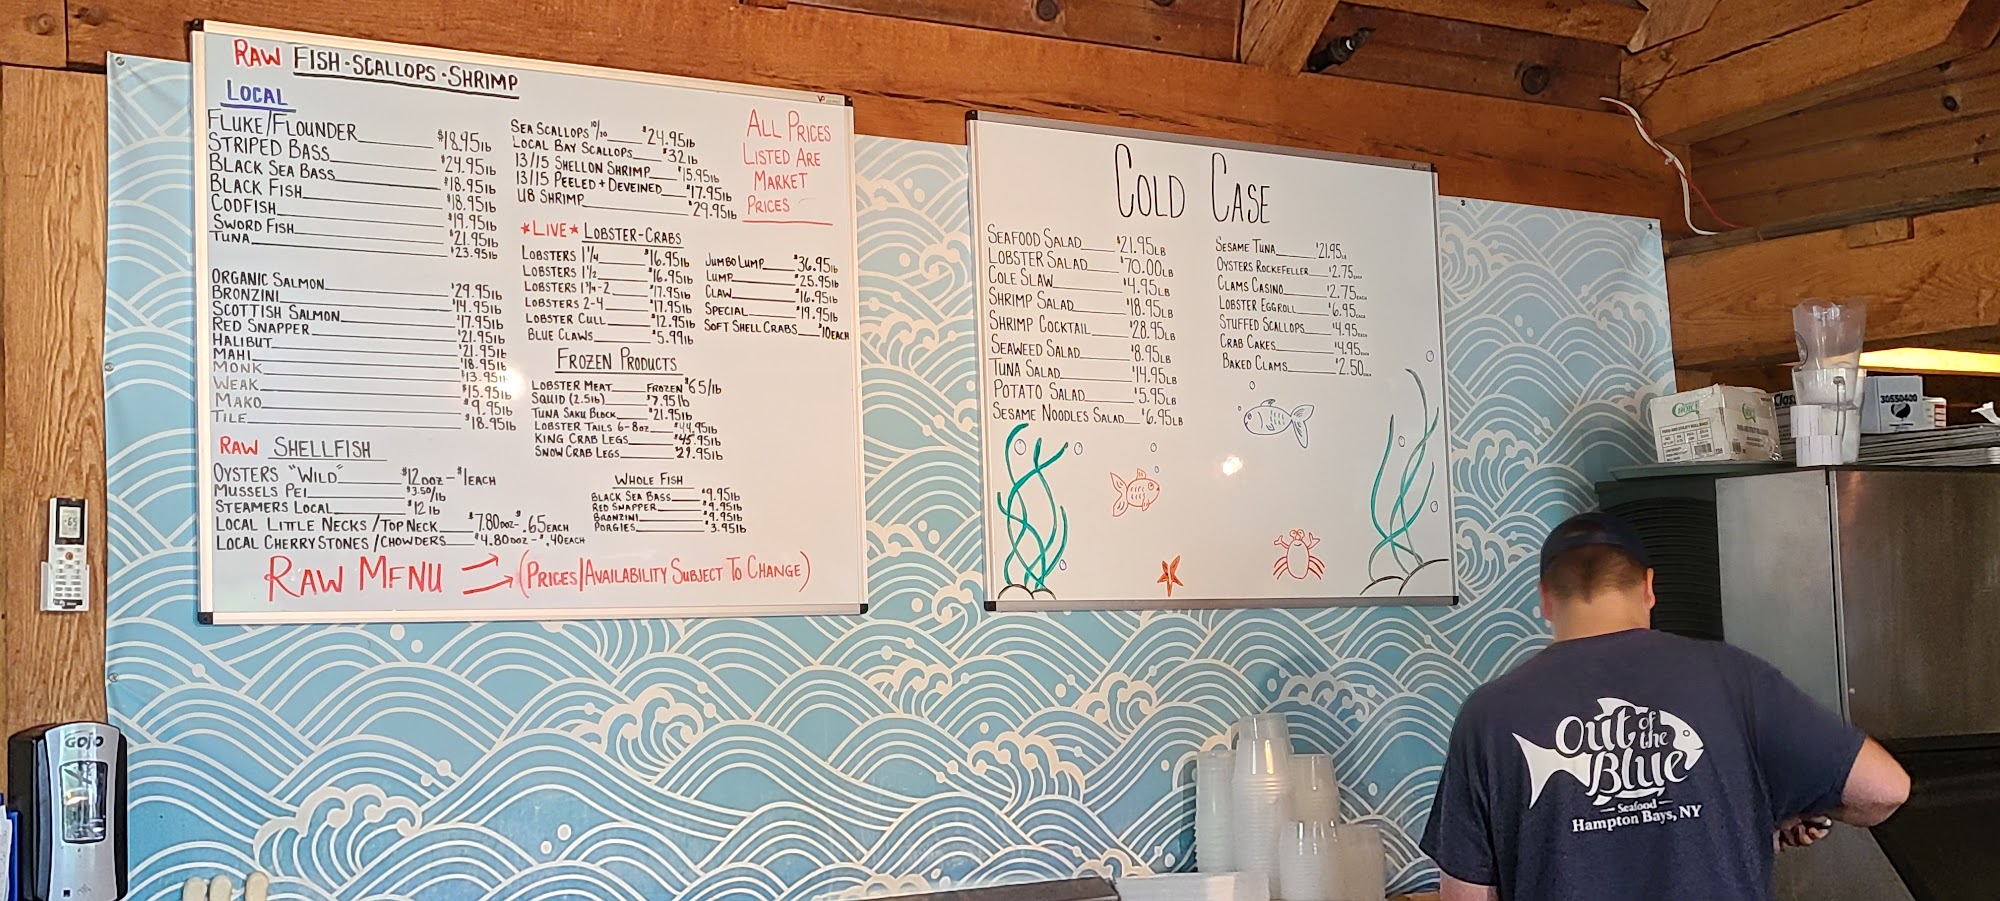 RAW FISH-SCALLOPS-SHRIMP
LOCAL
FLUKE/FLOUNDER $18.95lb
STRIPED BASS $24.95lb
BLACK SEA BASS $18.95lb
BLACK FISH $18.95lb
CODFISH $19.95lb
SWORD FISH $21.95lb
TUNA $23.95lb
ORGANIC SALMON $29.95lb
BRONZINI $14.95lb
SCOTTISH SALMON $17.95lb
RED SNAPPER $21.95lb
HALIBUT $21.95lb
MAHI $18.95lb
MONK $13.95lb
WEAK $15.95lb
MAKO $9.95lb
TILE $18.95lb
RAW SHELLFISH
OYSTERS "WILD" $12 DOZ - $1 EACH
MUSSELS PEI $3.50/lb
STEAMERS LOCAL $12 lb
LOCAL LITTLE NECKS/TOP NECK $7.80 DOZ - $.65 EACH
LOCAL CHERRYSTONES/CHOWDERS $4.80 DOZ - $.40 EACH
SEA SCALLOPS 10/20 $24.95lb
LOCAL BAY SCALLOPS $32lb
13/15 SHELLON SHRIMP $15.95lb
13/15 PEELED + DEVEINED $17.95lb
U8 SHRIMP $29.95lb
ALL PRICES
LISTED ARE
MARKET
PRICES
*LIVE* LOBSTER-CRABS
LOBSTERS 1 1/4 $16.95lb
LOBSTERS 1 1/2 $16.95lb
LOBSTERS 1 3/4-2 $17.95lb
LOBSTERS 2-4 $17.95lb
LOBSTER CULL $12.95lb
BLUE CLAWS $5.99lb
JUMBO LUMP $36.95lb
LUMP $25.95lb
CLAW $16.95lb
SPECIAL $19.95lb
SOFT SHELL CRABS $10 EACH
FROZEN PRODUCTS
LOBSTER MEAT FROZEN $65/lb
SQUID (2.5lb) $7.95lb
TUNA SAKU BLOCK $21.95lb
LOBSTER TAILS 6-8oz $44.95lb
KING CRAB LEGS $45.95lb
SNOW CRAB LEGS $29.95lb
WHOLE FISH
BLACK SEA BASS $9.95lb
RED SNAPPER $9.95lb
BRONZINI $9.95lb
PORGIES $3.95lb
RAW MENU (PRICES/AVAILABILITY SUBJECT TO CHANGE)
COLD CASE
SEAFOOD SALAD $21.95LB
LOBSTER SALAD $70.00LB
COLE SLAW $4.95LB
SHRIMP SALAD $18.95LB
SHRIMP COCKTAIL $28.95LB
SEAWEED SALAD $8.95LB
TUNA SALAD $14.95LB
POTATO SALAD $5.95LB
SESAME NOODLES SALAD $6.95LB
SESAME TUNA $21.95LB
OYSTERS ROCKEFELLER $2.75 EACH
CLAMS CASINO $2.75 EACH
LOBSTER EGGROLL $6.95 EACH
STUFFED SCALLOPS $4.95 EACH
CRAB CAKES $4.95 EACH
BAKED CLAMS $2.50 EACH
GOJO
30550400
Out of the Blue
Seafood
Hampton Bays, NY